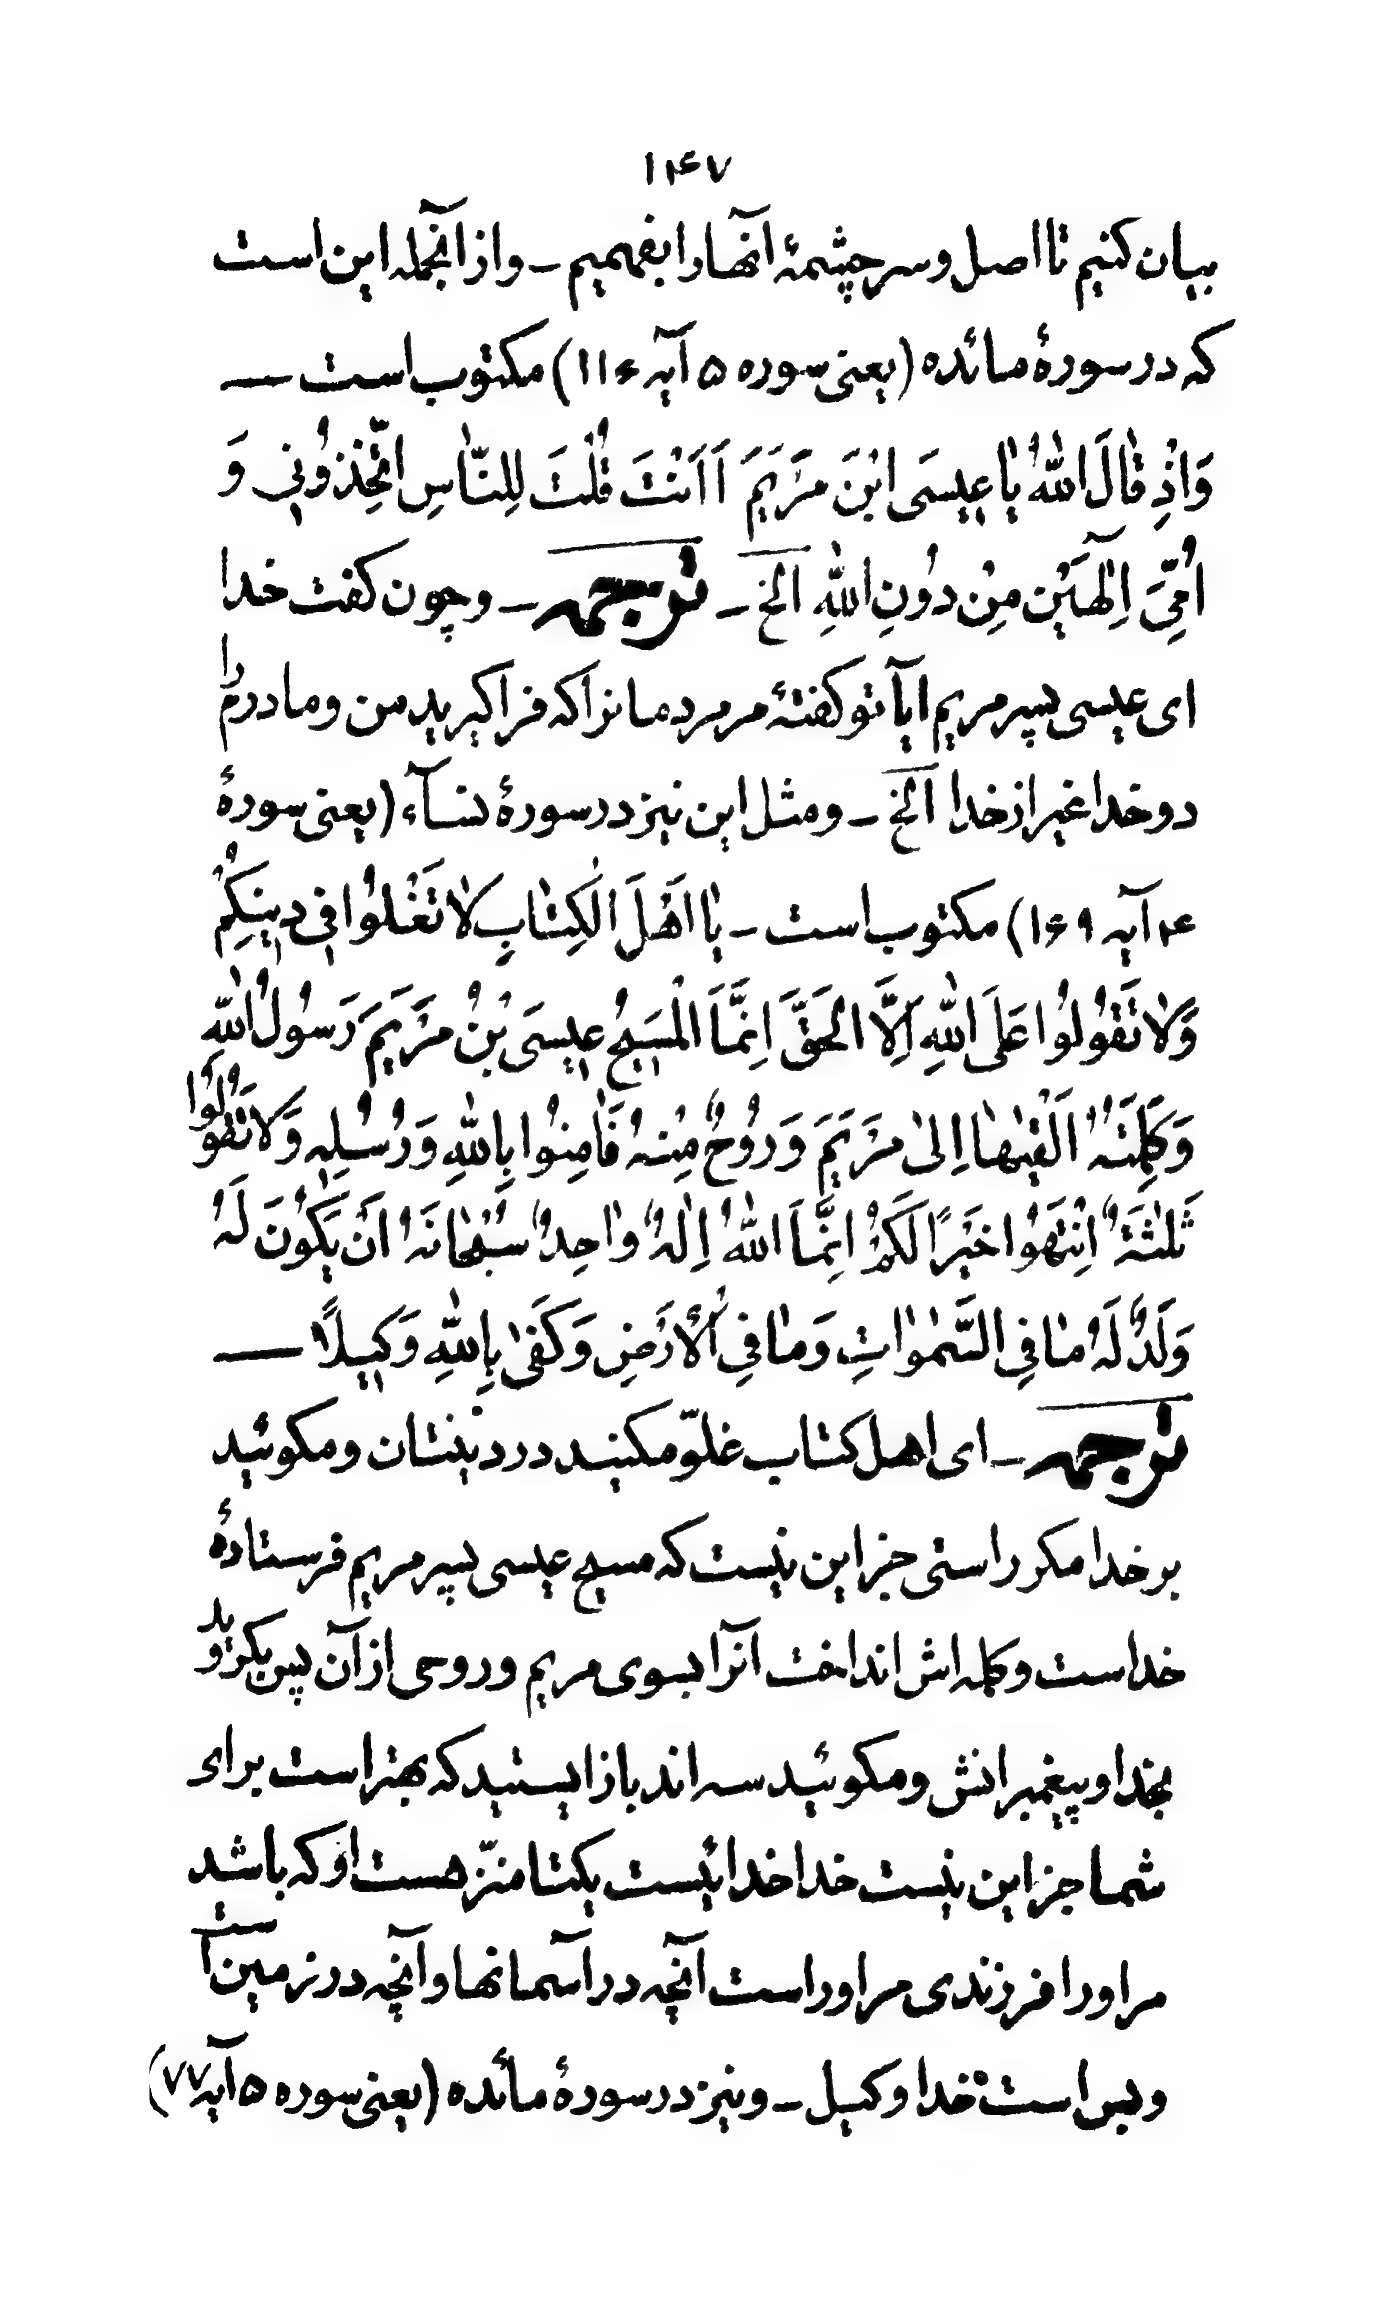 ۱۴۷
بیان کنیم تا اصل و سرچشمهٔ آنها را بفهمیم ــ و از آنجمله این است
که در سورهٔ مائده (یعنی سوره ۵ آیه ۱۱۶) مکتوب است ــ
وَاِذْ قٰالَ اللّٰهُ یٰا عیسَی ابْنَ مَرْیَمَ اَاَنْتَ قُلْتَ لِلنّٰاسِ اتَّخِذُونی وَ
اُمِّیَ اِلٰهَیْنِ مِنْ دُونِ اللّٰهِ الخ ــ ترجمه ــ و چون کفت خدا
ای عیسی پسر مریم ایا تو کفتهٔ مر مردمانرا که فرا کیرید من و مادرم را
دو خدا غیر از خدا الخ ــ و مثل این نیز در سورهٔ نسآء (یعنی سورهٔ
۴ آیه ۱۶۹) مکتوب است ــ یٰا اَهْلَ الْکِتٰابِ لٰا تَغْلُوا فی دینِکُمْ
وَلٰا تَقُولُوا عَلَی اللّٰهِ اِلَّا الْحَقَّ اِنَّمَا الْمَسیحُ عیسَی بْنُ مَرْیَمَ رَسُولُ اللّٰهِ
وَکَلِمَتُهُ اَلْقٰیهٰا اِلیٰ مَرْیَمَ وَرُوحٌ مِنْهُ فَاٰمِنُوا بِاللّٰهِ وَرُسُلِهِ وَلٰا تَقُولُوا
ثَلٰثَةٌ اِنْتَهُوا خَیْرًا لَکُمْ اِنَّمَا اللّٰهُ اِلٰهٌ وٰاحِدٌ سُبْحٰانَهُ اَنْ یَکُونَ لَهُ
وَلَدٌ لَهُ مٰا فِی السَّمٰوٰاتِ وَمٰا فِی الْاَرْضِ وَکَفیٰ بِاللّٰهِ وَکیلًا ــ
ترجمه ــ ای اهل کتاب غلوّ مکنید در دینتان و مکوئید
بر خدا مکر راستی جز این نیست که مسیح عیسی پسر مریم فرستادهٔ
خداست و کلمه اش انداخت آنرا بسوی مریم و روحی از آن پس بکروید
بخدا و پیغمبرانش و مکوئید سه اند باز ایستید که بهتر است برای
شما جز این نیست خدا خدائیست یکتا منزّ هست او که باشد
مر او را فرزندی مر او راست آنچه در آسمانها و آنچه در زمین است
و بس است خدا وکیل ــ و نیز در سورهٔ مائده (یعنی سوره ۵ آیه ۷۷)